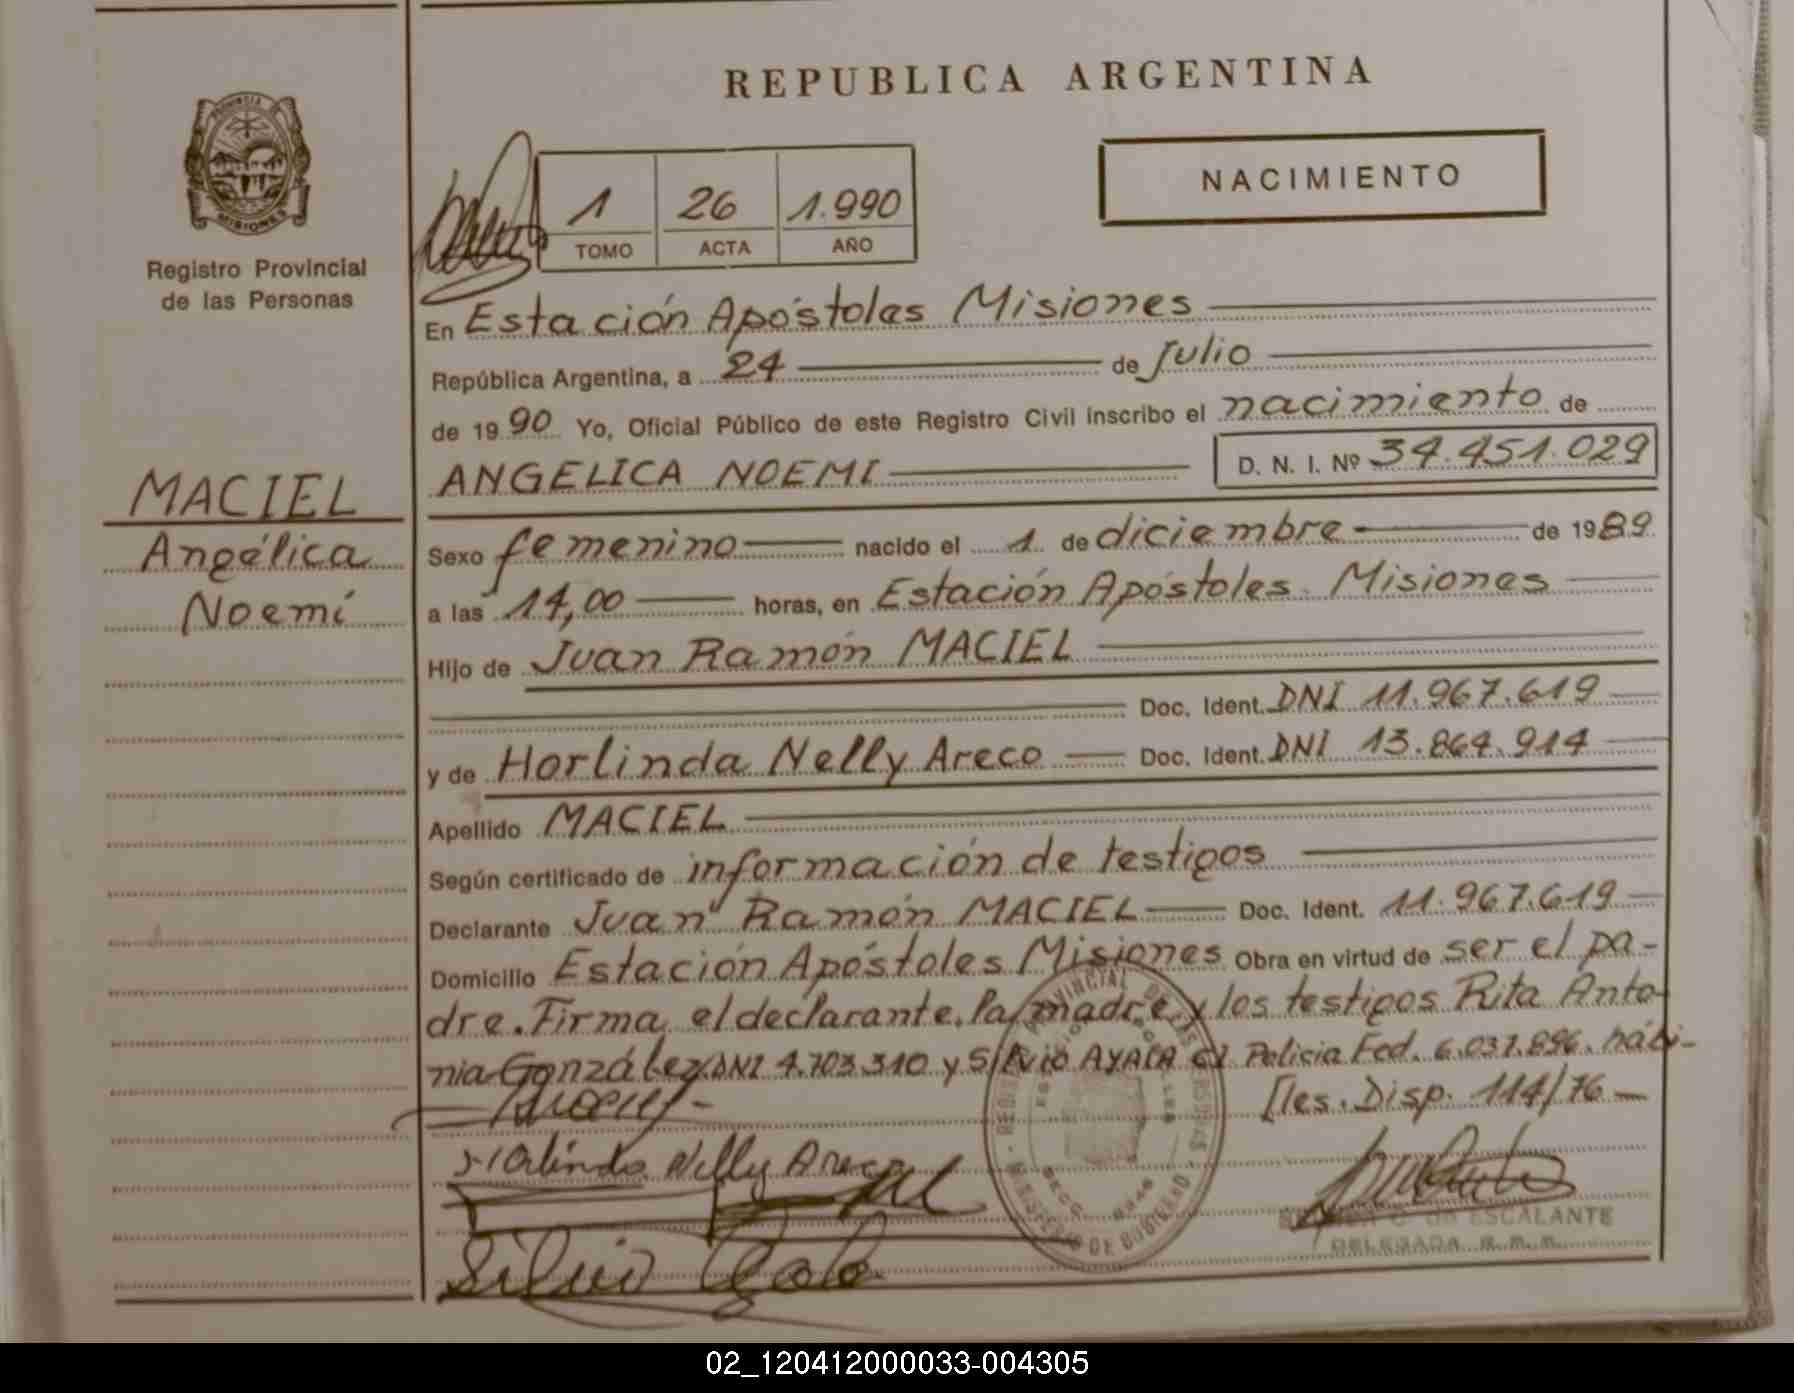 REPUBLICA ARGENTINA
PROVINCIA DE
MISIONES
Registro Provincial
de las Personas
NACIMIENTO
1 26 1.990
TOMO ACTA AÑO
En Estación Apóstoles Misiones
República Argentina, a 24 de Julio
de 1990 Yo, Oficial Público de este Registro Civil inscribo el nacimiento de
ANGELICA NOEMI D. N. I. Nº 34.451.029
MACIEL
Angélica
Noemí
Sexo femenino nacido el 1 de diciembre de 1989
a las 14,00 horas, en Estación Apóstoles. Misiones
Hijo de Juan Ramón MACIEL
Doc. Ident. DNI 11.967.619
y de Horlinda Nelly Areco Doc. Ident. DNI 13.864.914
Apellido MACIEL
Según certificado de información de testigos
Declarante Juan Ramón MACIEL Doc. Ident. 11.967.619
Domicilio Estación Apóstoles Misiones Obra en virtud de ser el pa-
dre. Firma el declarante, la madre y los testigos Rita Anto-
nia González DNI 4.703.310 y Silvio AYALA CI Policia Fed. 6.037.896. hábi-
les. Disp. 114/76
Horlinda Nelly Areco
Silvio
DE ESCALANTE
DELEGADA
02_120412000033-004305